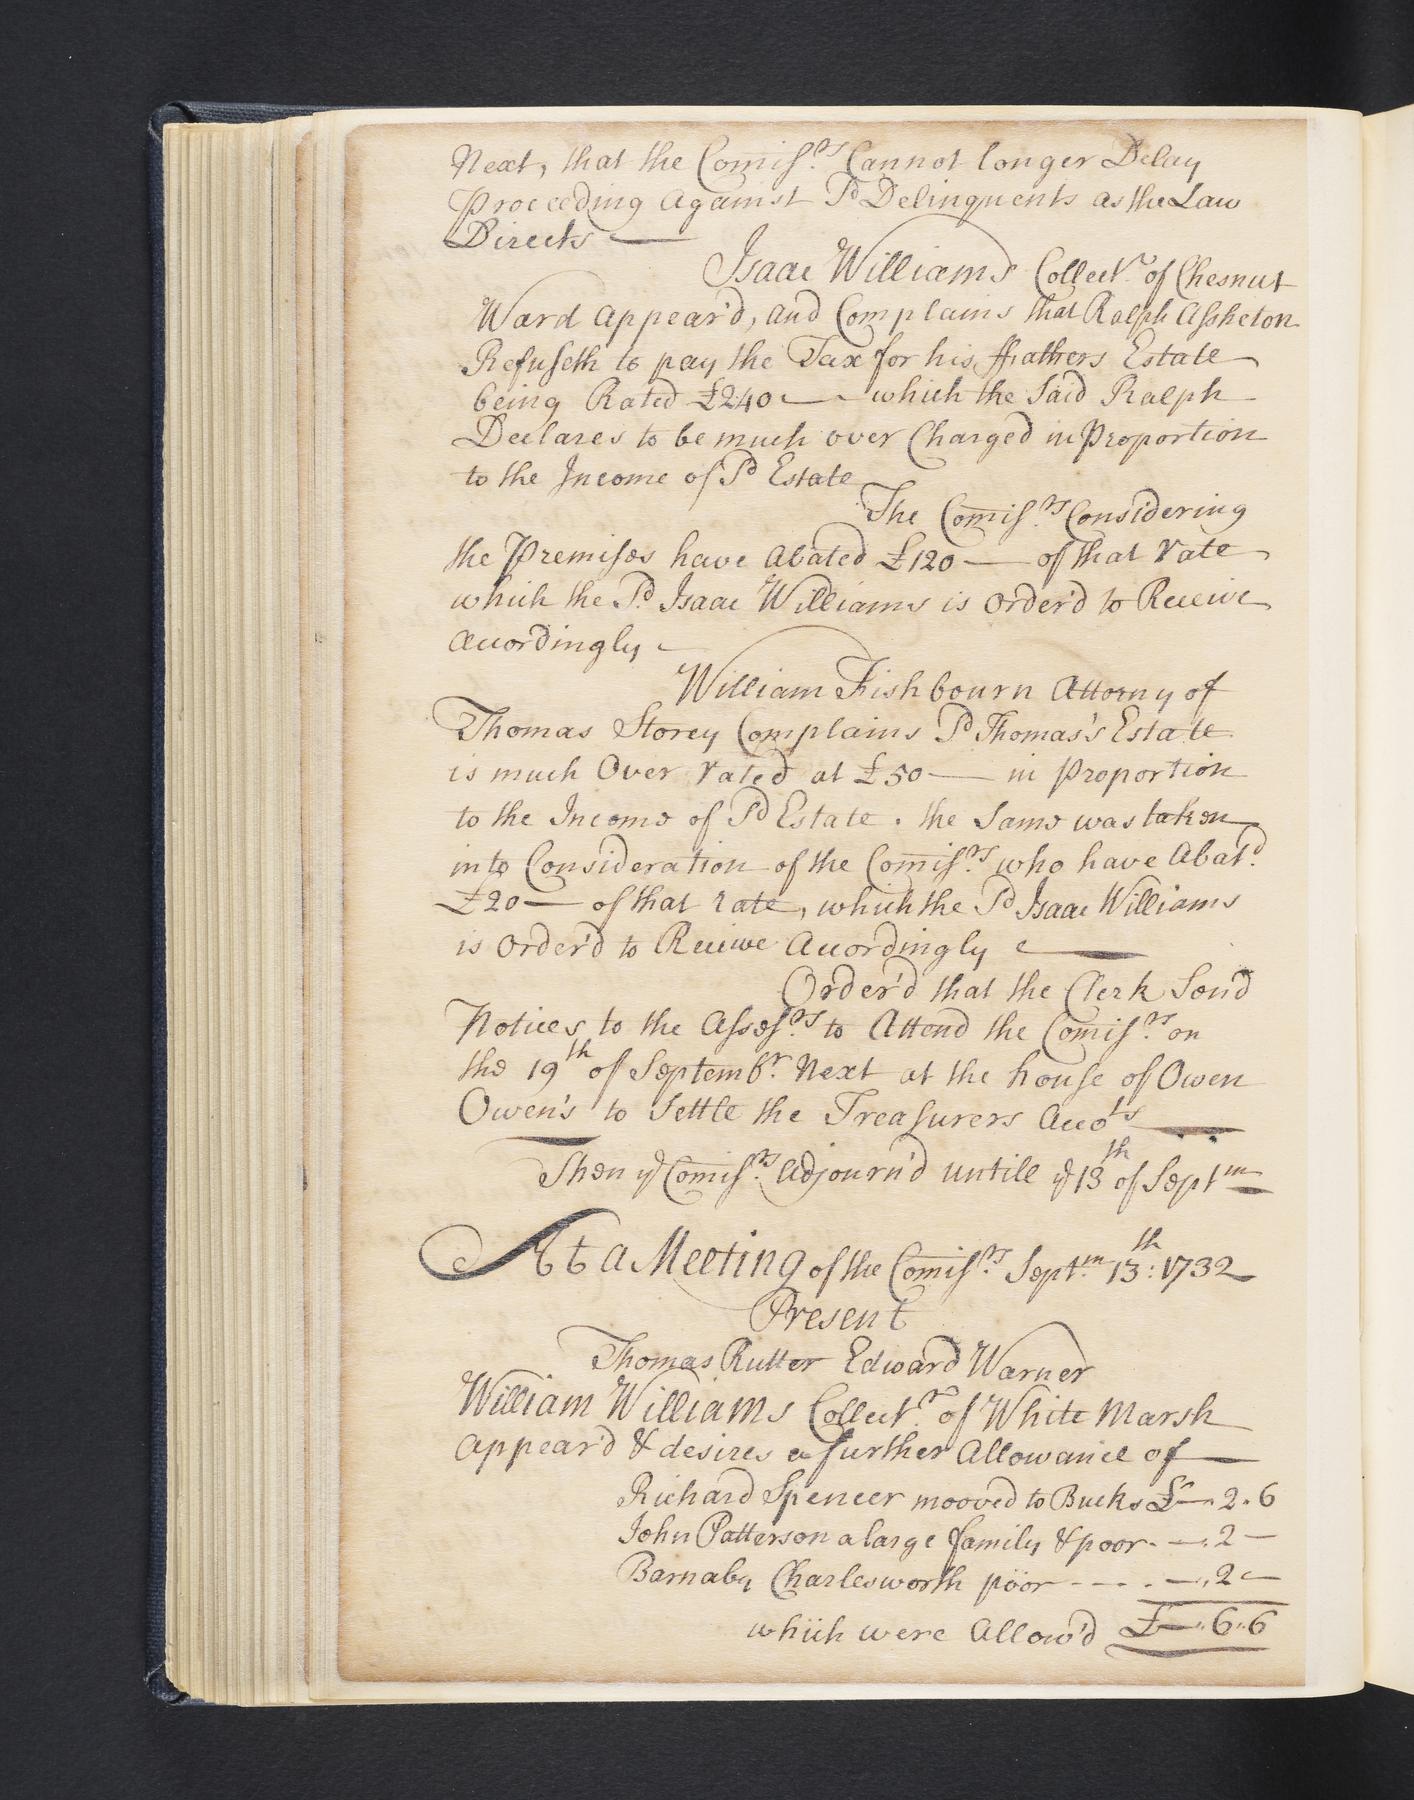 Next, that the Comiss.rs Cannot longer Delay
Proceeding Against Sd Delinquents as the Law
Directs —
Isaac Williams Collect.r of Chesnut
Ward Appear'd, and Complains that Ralph Assheton
Refuseth to pay the Tax for his ffathers Estate
being Rated £240 — which the Said Ralph
Declares to be much over Charged in Proportion
to the Income of Sd Estate
The Comiss.rs Considering
the Premises have Abated £120 — of that Rate
which the Sd Isaac Williams is Order'd to Receive
Accordingly —
William Fishbourn Attorny of
Thomas Storey Complains Sd Thomas's Estate
is much Over rated at £50 — in Proportion
to the Income of Sd Estate . the Same was taken
into Consideration of the Comiss.rs who have Abat.d
£20 — of that rate, which the Sd Isaac Williams
is Order'd to Receive Accordingly —
Order'd that the Clerk Send
Notices to the Assess.rs to Attend the Comiss.rs on
the 19th of Septemb.r Next at the house of Owen
Owen's to Settle the Treasurers Acco.ts —
Then ye Comiss.rs Adjourn'd untill ye 13th of Septm
At a Meeting of the Comiss.rs Sept.m 13th: 1732
Present
Thomas Rutter Edward Warner
William Williams Collect.r of White Marsh
appear'd & desires a further Allowance of —
Richard Spencer mooved to Bucks £ — . 2 . 6
John Patterson a large family & poor . — . 2 —
Barnaby Charlesworth poor - - - . — . 2 —
which were Allow'd £ — . 6 . 6